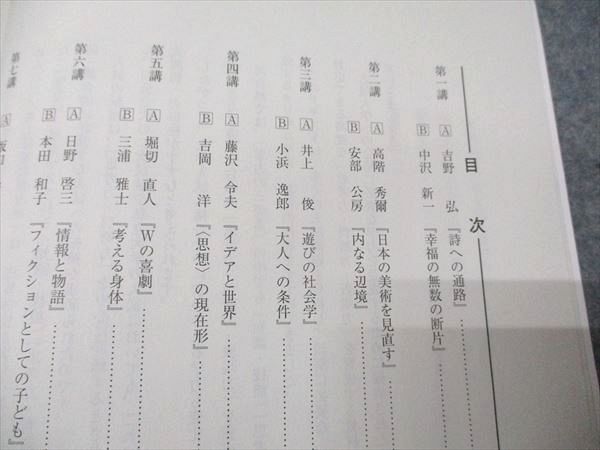 目次
第一講
A 吉野 弘『詩への通路』
B 中沢 新一『幸福の無数の断片』
第二講
A 高階 秀爾『日本の美術を見直す』
B 安部 公房『内なる辺境』
第三講
A 井上 俊『遊びの社会学』
B 小浜 逸郎『大人への条件』
第四講
A 藤沢 令夫『イデアと世界』
B 吉岡 洋『〈思想〉の現在形』
第五講
A 堀切 直人『Wの喜劇』
B 三浦 雅士『考える身体』
第六講
A 日野 啓三『情報と物語』
B 本田 和子『フィクションとしての子ども』
第七講
A